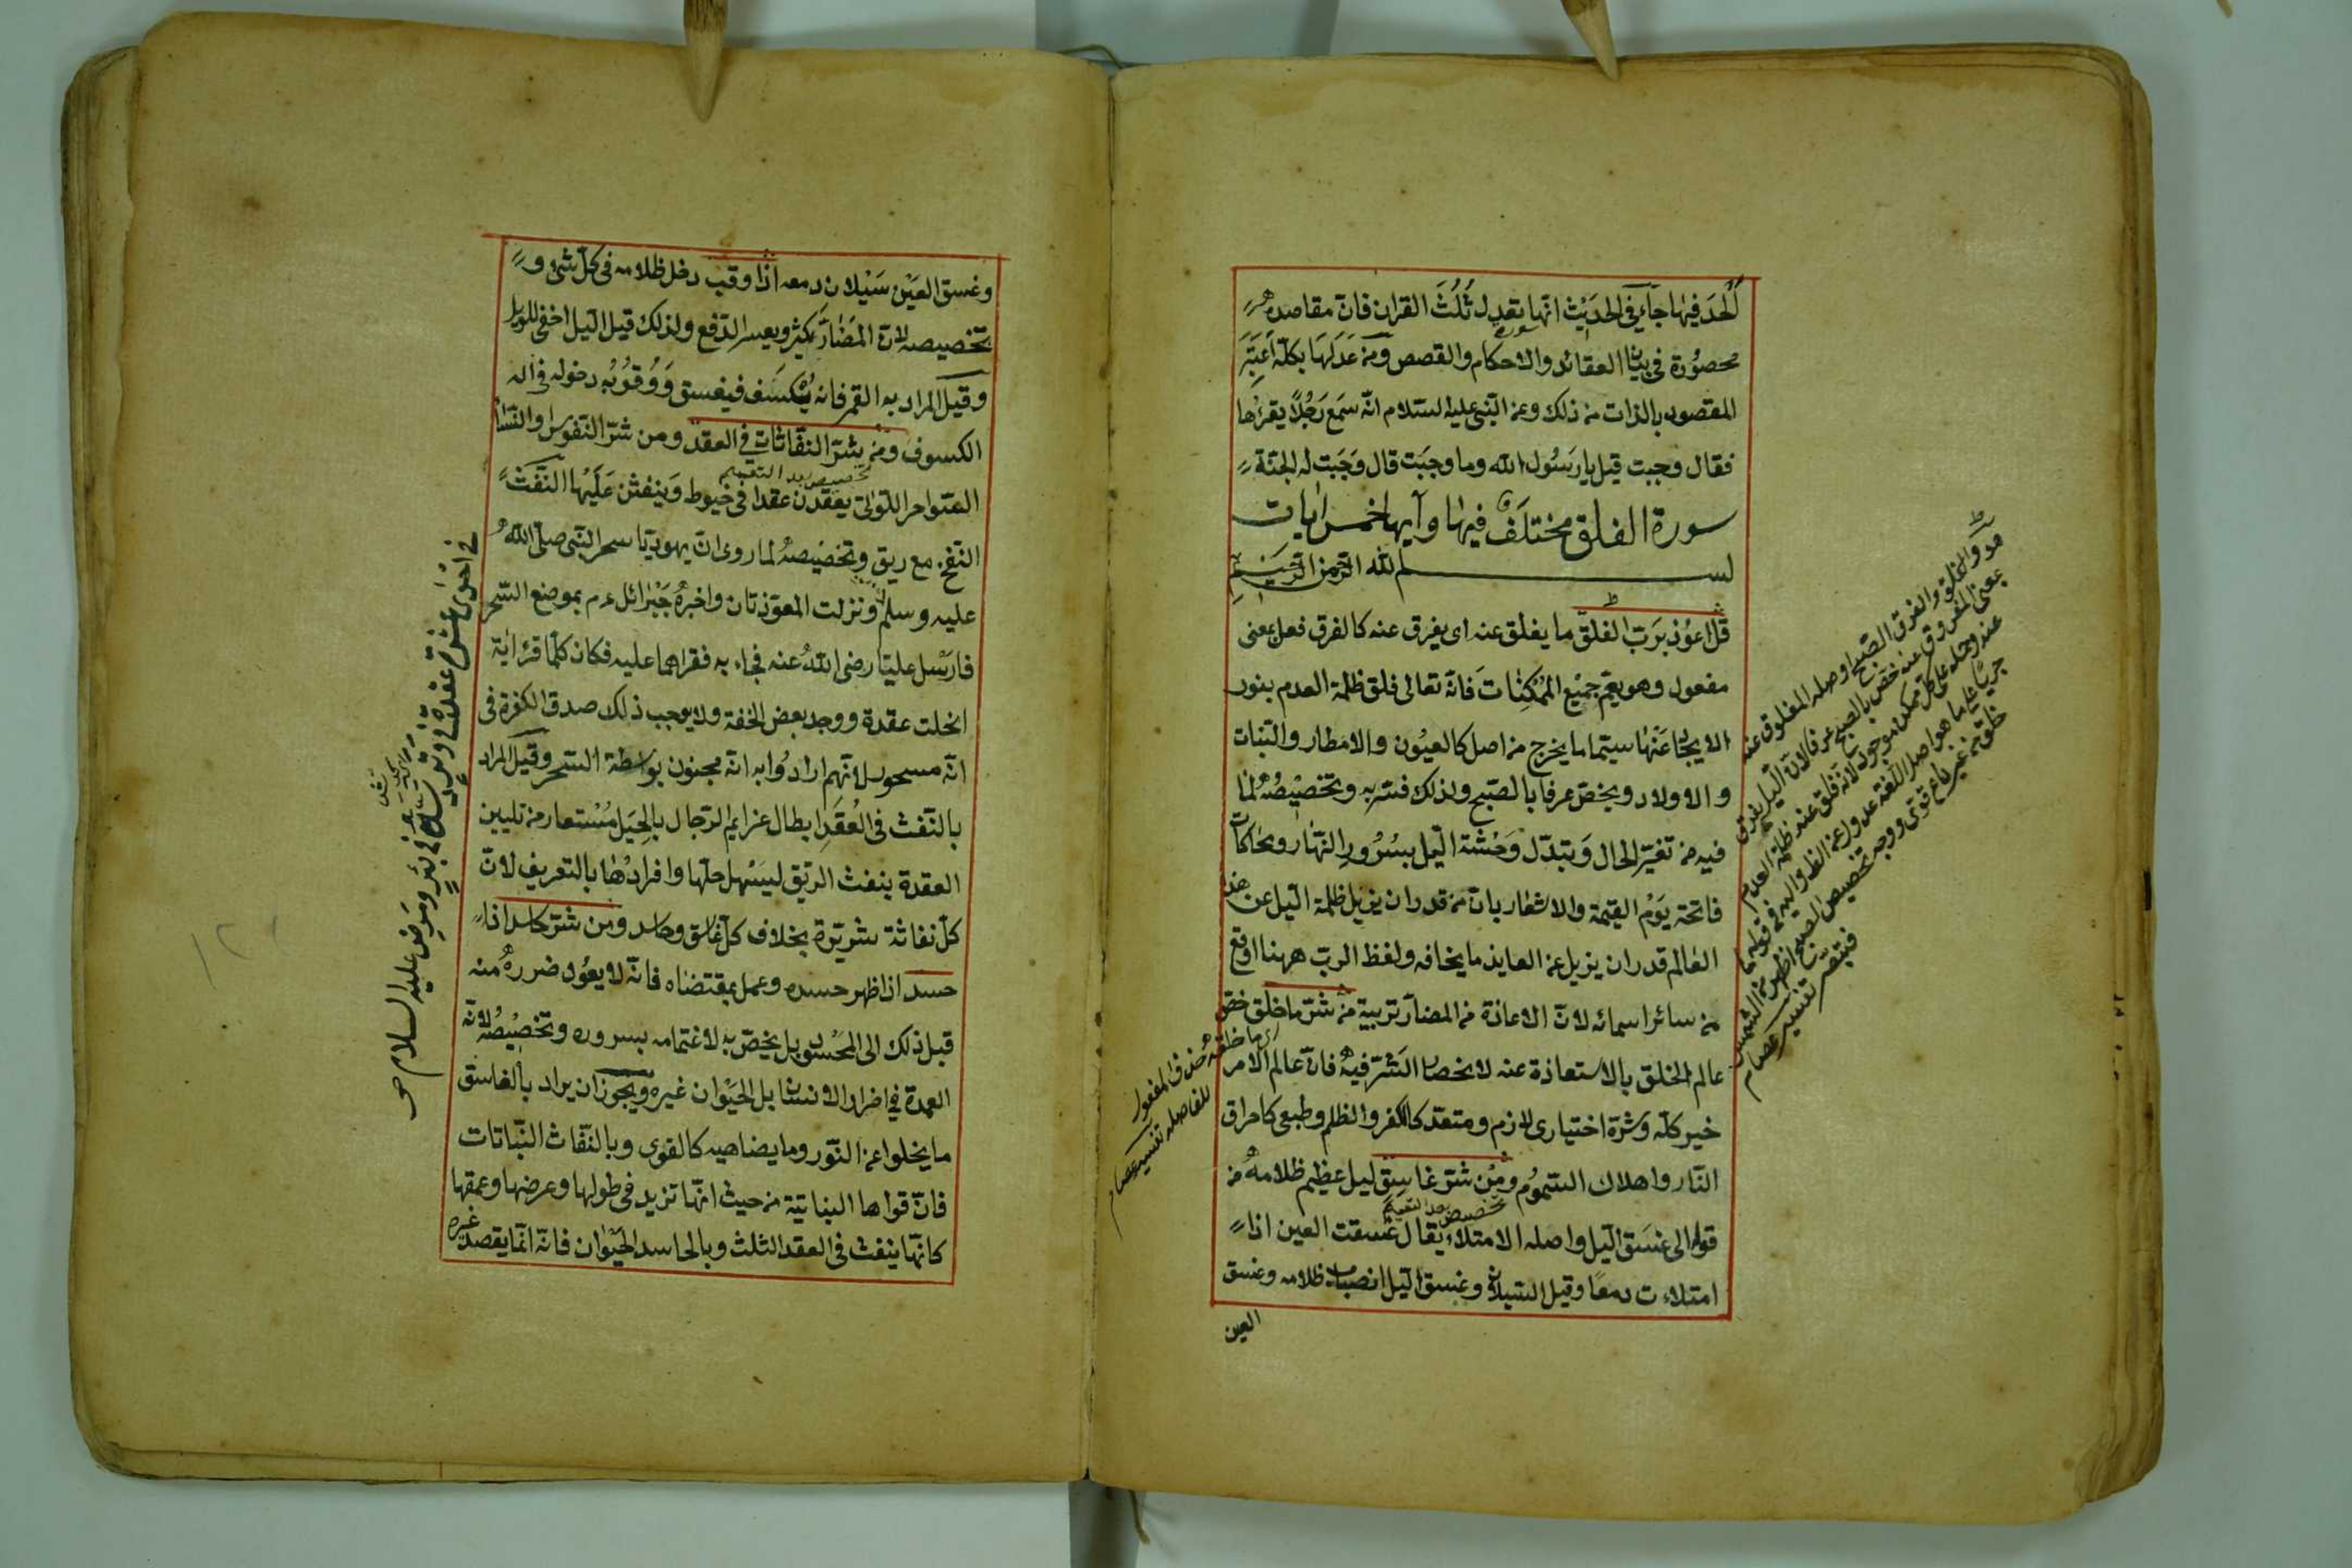 ألحد فيها جاء في الحديث انها تعدل ثلث القران فان مقاصده
محصورة في بيان العقائد والاحكام والقصص ومن عدلها بكله اعتبر
المقصود بالذات من ذلك وعن النبي عليه السلام انه سمع رجلا يقرءها
فقال وجبت قيل يا رسول الله وما وجبت قال وجبت له الجنة
سورة الفلق مختلف فيها وآيها خمس ايات
بسم الله الرحمن الرحيم
قل اعوذ برب الفلق ما يفلق عنه اى يفرق عنه كالفرق فعل بمعنى
مفعول وهو يعم جميع الممكنات فانه تعالى فلق ظلمة العدم بنور
الايجاد عنها سيما ما يخرج من اصل كالعيون والامطار والنبات
والاولاد ويخص عرفا بالصبح ولذلك فسر به وتخصيصه لما
فيه من تغير الحال وتبدل وحشة الليل بسرور النهار ومحاكات
فاتحة يوم القيمة والاشعار بان من قدر ان يزيل ظلمة الليل عن هذا
العالم قدر ان يزيل عن العايذ ما يخافه ولفظ الرب ههنا اوقع
من سائر اسمائه لان الاعاذة من المضار تربية من شر ما خلق خص
عالم الخلق بالاستعاذة عنه لانحصار الشر فيه فان عالم الامر
خير كله وشره اختيارى لازم ومتعد كالكفر والظلم وطبعى كاحراق
النار واهلاك السموم ومن شر غاسق ليل عظيم ظلامه من
تخصيص بعد التعميم
قوله الى غسق الليل واصله الامتلاء يقال غسقت العين اذا
امتلاءت دمعا وقيل السيلان وغسق الليل انصباب ظلامه وغسق
العين
اى ما خلقه حذف المفعول
للفاصلة تفسير عصام
بمعنى المفروق عنه خص بالصبح عرفا لان الليل يفرق
عنه وحمله على كل ممكن موجود لانه فلق عنه ظلمة العدم
فيتصر تفسير عصام
وغسق العين سيلان دمعه اذا وقب دخل ظلامه في كل شئ و
تخصيصه لان المضار يكثر ويعسر الدفع ولذلك قيل الليل اخفى للويل
وقيل المراد به القمر فانه يكسف فيغسق ووقوبه دخوله في اله
الكسوف ومن شر النفاثات في العقد ومن شر النفوس والنساء
تخصيص بعد التعميم
السواحر اللواتى يعقدن عقدا في خيوط وينفثن عليها النفث
النفخ مع ريق وتخصيصه لما روى ان يهوديا سحر النبي صلى الله
عليه وسلم ونزلت المعوذتان واخبره جبرائل عم بموضع السحر
فارسل عليا رضى الله عنه فجاء به فقراهما عليه فكان كلما قرء اية
انحلت عقدة ووجد بعض الخفة ولا يوجب ذلك صدق الكفرة في
انه مسحور لانهم ارادوا به انه مجنون بواسطة السحر وقيل المراد
بالنفث في العقد ابطال عزايم الرجال بالحيل مستعار من تليين
العقدة بنفث الريق ليسهل حلها وافرادها بالتعريف لان
كل نفاثة شريرة بخلاف كل غاسق وحاسد ومن شر حاسد اذا
حسد اذا ظهر حسده وعمل بمقتضاه فانه لا يعود ضرره منه
قبل ذلك الى المحسود بل يخص به لاغتمامه بسروره وتخصيصه لانه
العمدة في اضرار الانسان بل الحيوان غيره ويجوز ان يراد بالغاسق
ما يخلوا عن النور وما يضاهيه كالقوى وبالنفاث النباتات
فان قواها النباتية من حيث انها تزيد في طولها وعرضها وعمقها
كانها ينفث في العقد الثلث وبالحاسد الحيوان فانه انما يقصد غيره
في احدى عشرة عقدة في وتر
في بئر ومرض عليه السلام